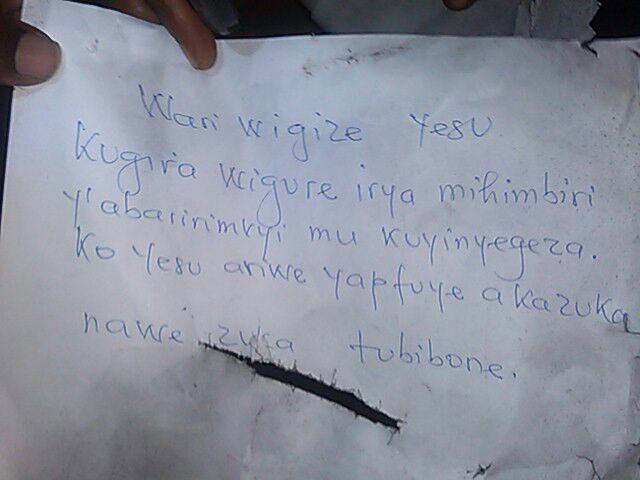 Wari wigize Yesu
Kugira wigure irya mihimbiri
y'abaririmvyi mu kuyinyegeza.
Ko Yesu ariwe yapfuye akazuka
nawe zuka tubibone.